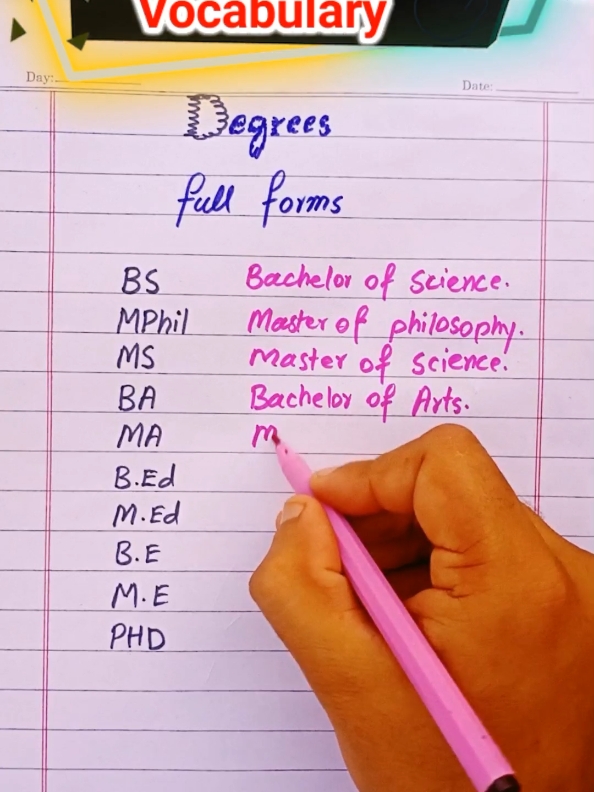 Vocabulary
Day:
Date:
Degrees
full forms
BS Bachelor of science.
MPhil Master of philosophy.
MS Master of science.
BA Bachelor of Arts.
MA M
B.Ed
M.Ed
B.E
M.E
PHD